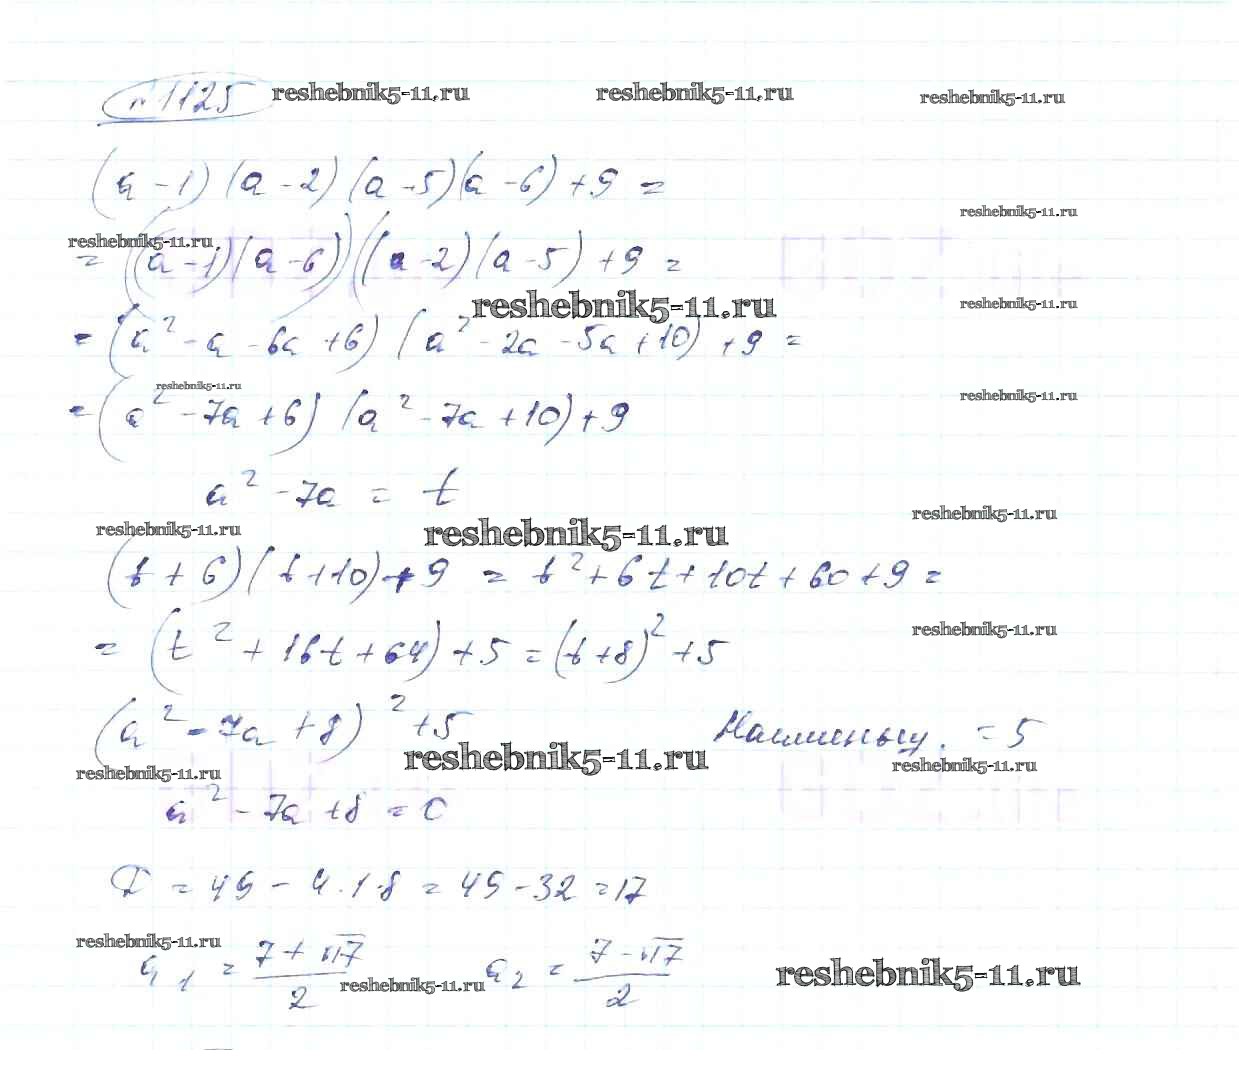 №1125 reshebnik5-11.ru reshebnik5-11.ru reshebnik5-11.ru
(a - 1) (a - 2) (a - 5) (a - 6) + 9 =
reshebnik5-11.ru
reshebnik5-11.ru
= ((a - 1) (a - 6)) ((a - 2) (a - 5) + 9 =
reshebnik5-11.ru reshebnik5-11.ru
= (a² - a - 6a + 6) (a² - 2a - 5a + 10) + 9 =
reshebnik5-11.ru reshebnik5-11.ru
= (a² - 7a + 6) (a² - 7a + 10) + 9
a² - 7a = t
reshebnik5-11.ru reshebnik5-11.ru reshebnik5-11.ru
(t + 6) (t + 10) + 9 = t² + 6t + 10t + 60 + 9 =
reshebnik5-11.ru
= (t² + 16t + 64) + 5 = (t + 8)² + 5
(a² - 7a + 8)² + 5 = 5
reshebnik5-11.ru reshebnik5-11.ru reshebnik5-11.ru
a² - 7a + 8 = 0
D = 49 - 4 · 1 · 8 = 49 - 32 = 17
reshebnik5-11.ru
a₁ = (7 + √17)/2 a₂ = (7 - √17)/2
reshebnik5-11.ru reshebnik5-11.ru